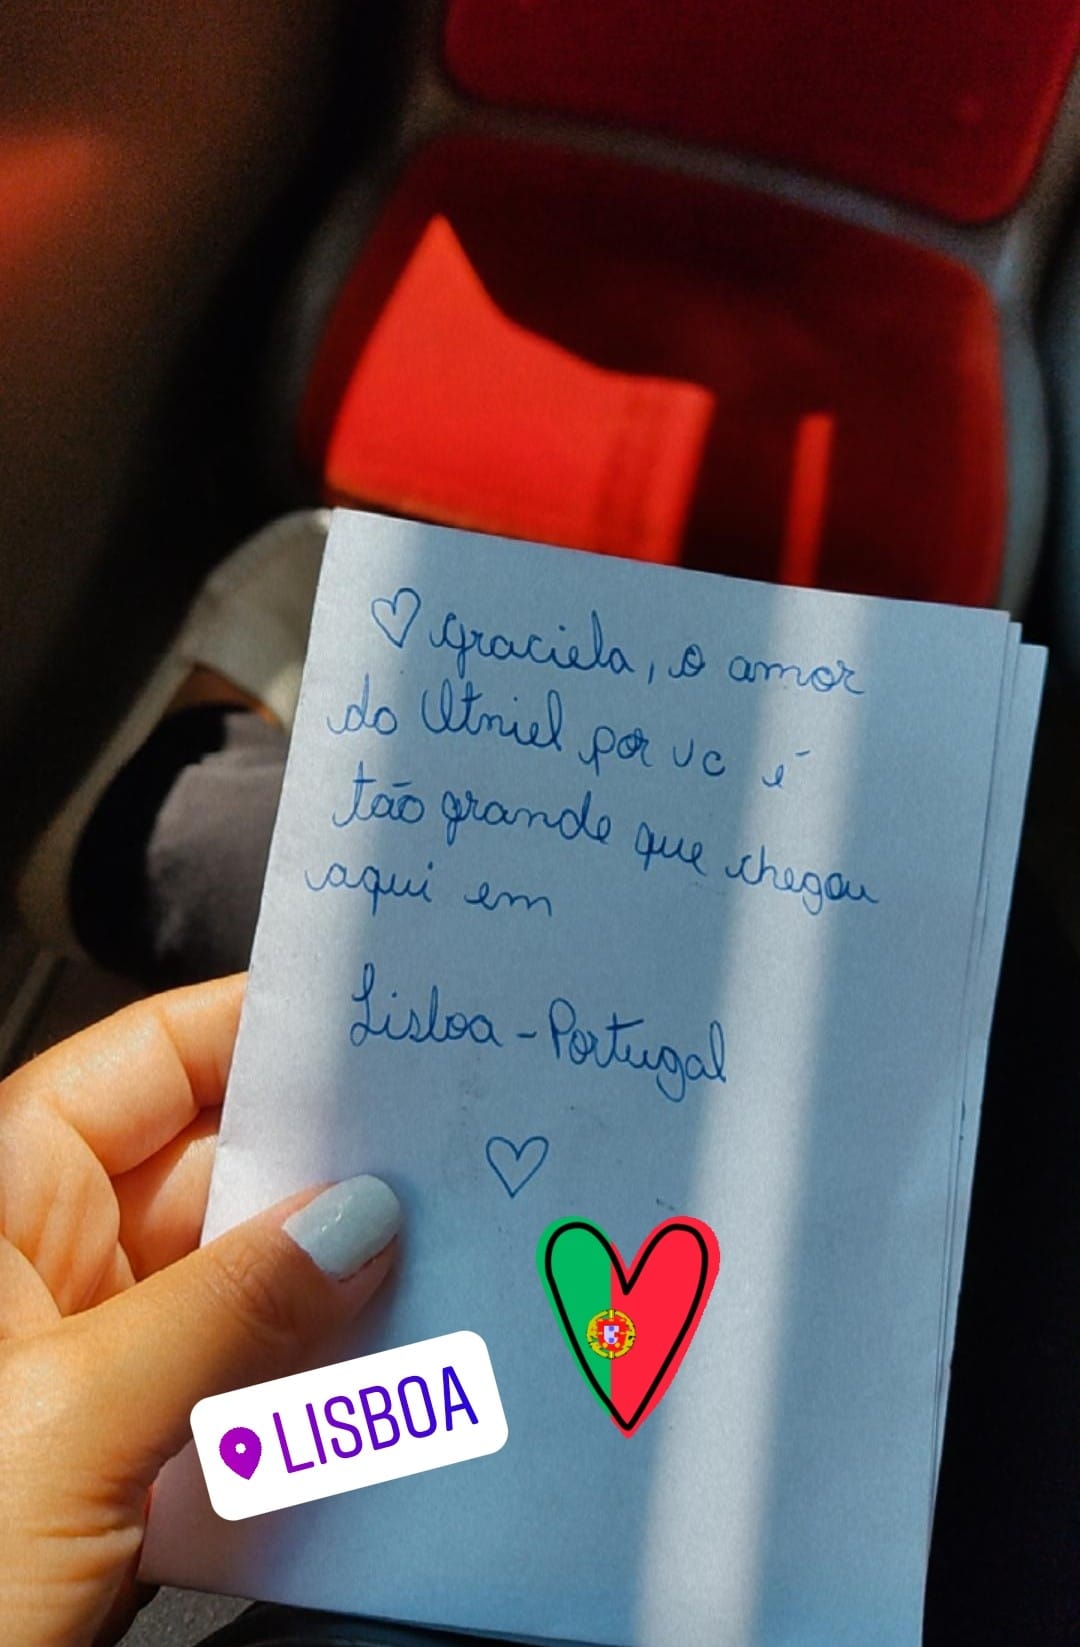 graciela, o amor
do Otniel por vc é
tão grande que chegou
aqui em
Lisboa - Portugal
LISBOA